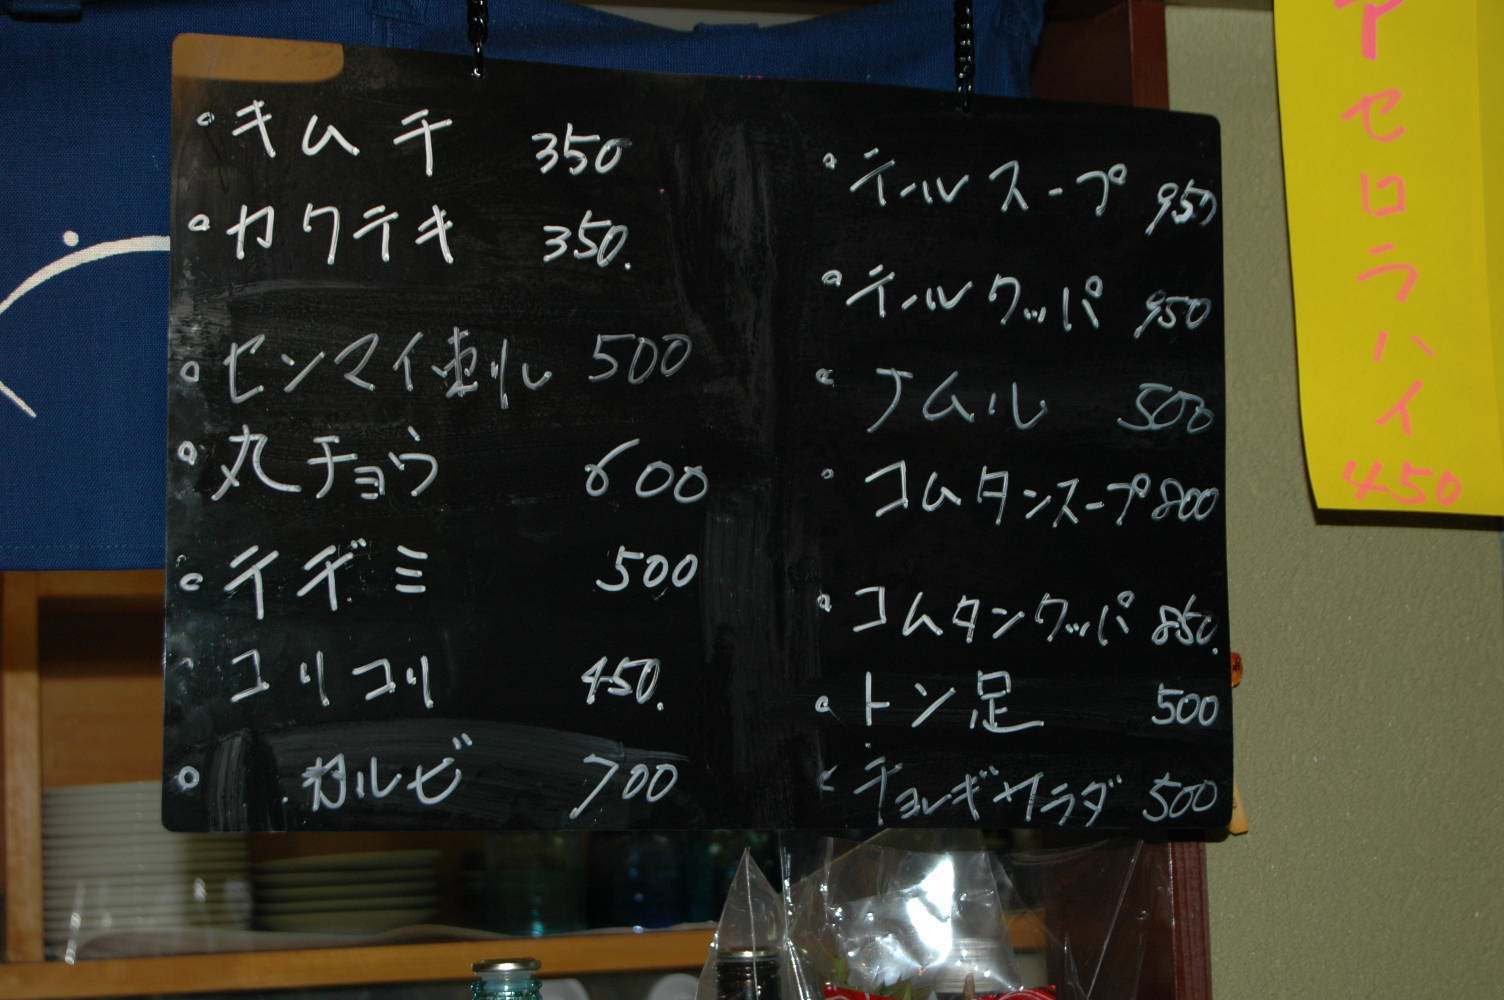 キムチ 350
カクテキ 350.
センマイ刺し 500
丸チョウ 600
チヂミ 500
コリコリ 450.
カルビ 700
テールスープ 950
テールクッパ 950
ナムル 500
コムタンスープ 800
コムタンクッパ 850.
トン足 500
チョレギサラダ 500
アセロラハイ
450